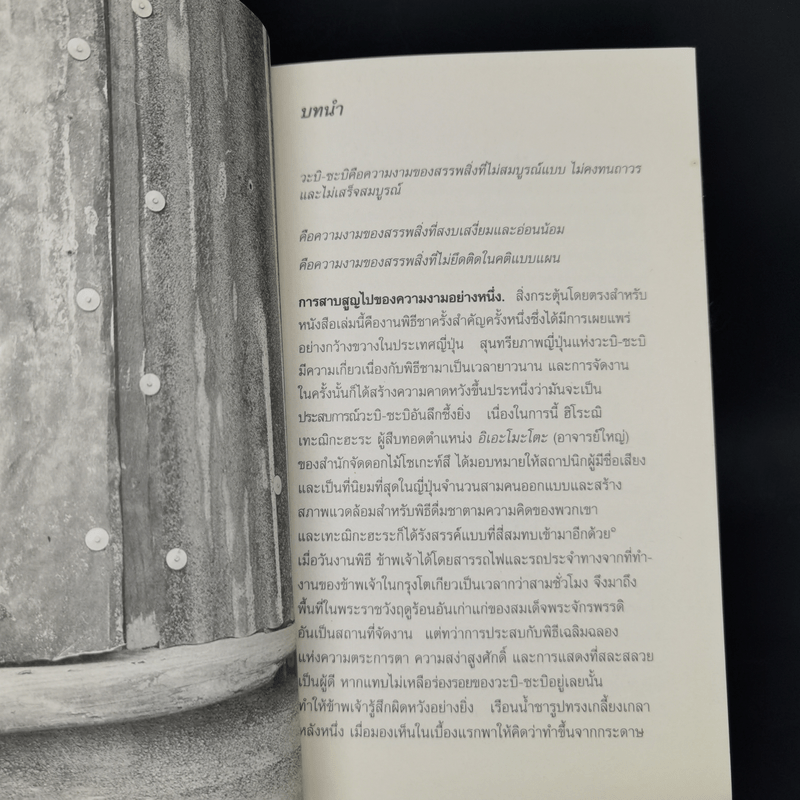 บทนำ
วะบิ-ซะบิคือความงามของสรรพสิ่งที่ไม่สมบูรณ์แบบ ไม่คงทนถาวร
และไม่เสร็จสมบูรณ์
คือความงามของสรรพสิ่งที่สงบเสงี่ยมและอ่อนน้อม
คือความงามของสรรพสิ่งที่ไม่ยึดติดในคติแบบแผน
การสาบสูญไปของความงามอย่างหนึ่ง. สิ่งกระตุ้นโดยตรงสำหรับ
หนังสือเล่มนี้คืองานพิธีชาครั้งสำคัญครั้งหนึ่งซึ่งได้มีการเผยแพร่
อย่างกว้างขวางในประเทศญี่ปุ่น สุนทรียภาพญี่ปุ่นแห่งวะบิ-ซะบิ
มีความเกี่ยวเนื่องกับพิธีชามาเป็นเวลายาวนาน และการจัดงาน
ในครั้งนั้นก็ได้สร้างความคาดหวังขึ้นประหนึ่งว่ามันจะเป็น
ประสบการณ์วะบิ-ซะบิอันลึกซึ้งยิ่ง เนื่องในการนี้ ฮิโระฌิ
เทะฌิกะฮะระ ผู้สืบทอดตำแหน่ง อิเอะโมะโตะ (อาจารย์ใหญ่)
ของสำนักจัดดอกไม้โซเกะท์สึ ได้มอบหมายให้สถาปนิกผู้มีชื่อเสียง
และเป็นที่นิยมที่สุดในญี่ปุ่นจำนวนสามคนออกแบบและสร้าง
สภาพแวดล้อมสำหรับพิธีดื่มชาตามความคิดของพวกเขา
และเทะฌิกะฮะระก็ได้รังสรรค์แบบที่สี่สมทบเข้ามาอีกด้วย°
เมื่อวันงานพิธี ข้าพเจ้าได้โดยสารรถไฟและรถประจำทางจากที่ทำ-
งานของข้าพเจ้าในกรุงโตเกียวเป็นเวลากว่าสามชั่วโมง จึงมาถึง
พื้นที่ในพระราชวังฤดูร้อนอันเก่าแก่ของสมเด็จพระจักรพรรดิ
อันเป็นสถานที่จัดงาน แต่ทว่าการประสบกับพิธีเฉลิมฉลอง
แห่งความตระการตา ความสง่าสูงศักดิ์ และการแสดงที่สละสลวย
เป็นผู้ดี หากแทบไม่เหลือร่องรอยของวะบิ-ซะบิอยู่เลยนั้น
ทำให้ข้าพเจ้ารู้สึกผิดหวังอย่างยิ่ง เรือนน้ำชารูปทรงเกลี้ยงเกลา
หลังหนึ่ง เมื่อมองเห็นในเบื้องแรกพาให้คิดว่าทำขึ้นจากกระดาษ